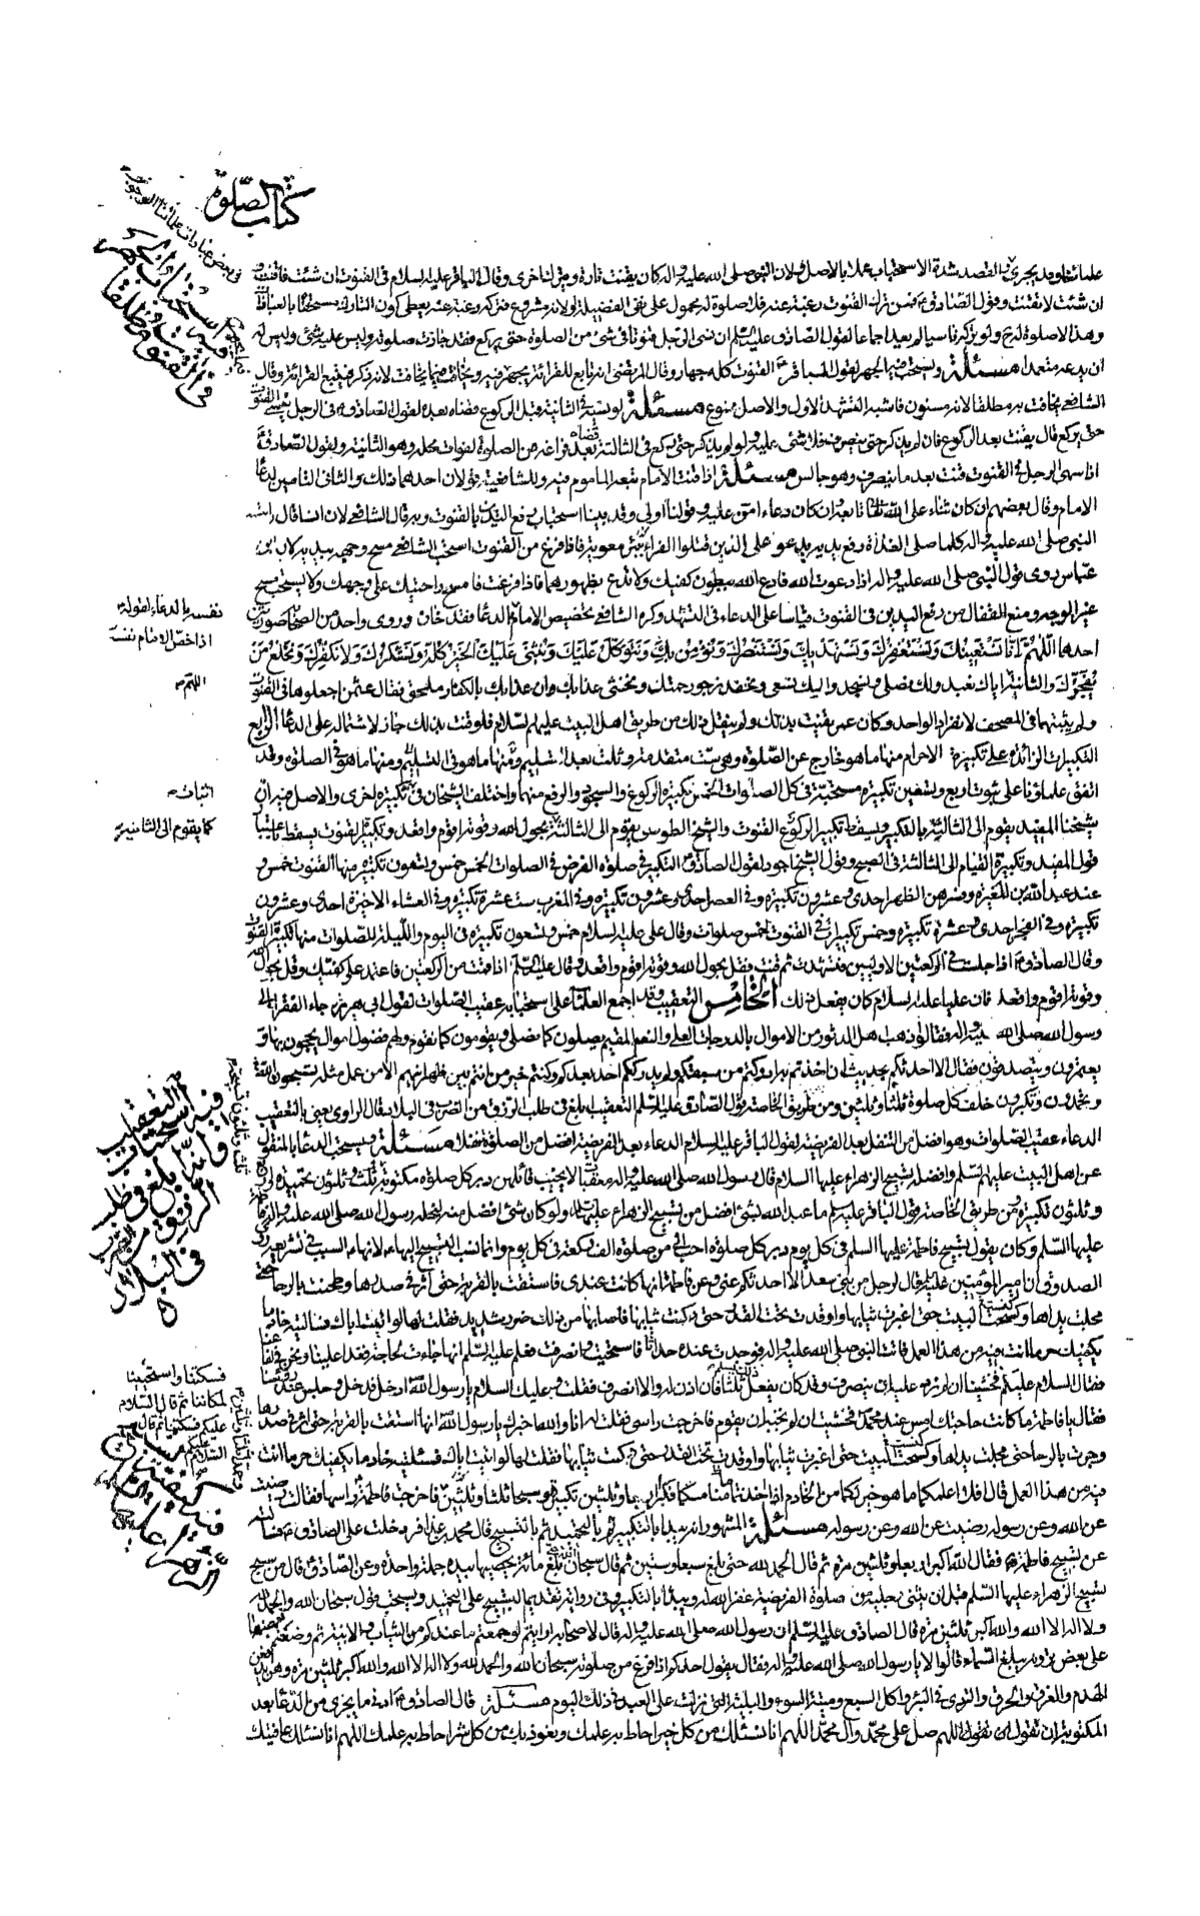 كتاب الصلوة
علمائنا وقد يجرى في القصد شدة الاستحباب عملا بالاصل ولان النبي صلى الله عليه واله كان يقنت تارة ويترك اخرى وقال الباقر عليه السلام في القنوت ان شئت فاقنت و
ان شئت لا تقنت وقول الصادق ع من ترك القنوت رغبة عنه فلا صلوة له محمول على نفى الفضيلة او لانه مشروع فتركه رغبة عنه يعطى كون التارك مستخفا بالعبادات
وهذا لا صلوة له ولو تركه ناسيا لم يعد اجماعا لقول الصادق عليه السلم ان نسى الرجل قنوتا في شئ من الصلوة حتى يركع فقد جازت صلوته وليس عليه شئ وليس له
ان يدعه متعمدا مسئلة ويستحب فيه الجهر لقول الباقر ع القنوت كله جهار وقال المرتضى انه تابع للفرائض يجهر فيه ويخافت فيما يخافت لانه ذكر فيتبع القراءة وقال
الشافعي يخافت به مطلقا لانه مسنون فاشبه التشهد الاول والاصل ممنوع مسئلة لو نسيه في الثانية قبل الركوع قضاه بعده لقول الصادق ع في الرجل ينسى القنوت
حتى يركع قال يقنت بعد الركوع فان لم يذكر حتى ينصرف فلا شئ عليه ولو لم يذكر حتى يركع في الثالثة قضاه بعد فراغه من الصلوة لفوات محله وهو الثانية ولقول الصادق ع
اذا سهى الرجل في القنوت قنت بعد ما ينصرف وهو جالس مسئلة اذا قنت الامام تبعه الماموم فيه وللشافعية قولان احدهما ذلك والثاني التامين لدعاء
الامام وقال بعضهم ان كان ثناء على الله تعالى تابعه وان كان دعاء امن عليه وقولنا اولى وقد بينا استحباب رفع اليدين بالقنوت وبه قال الشافعي لان انسا قال رايت
النبي صلى الله عليه واله كلما صلى الغداة رفع يديه يدعو على الذين قتلوا القراء ببئر معونة فاذا فرغ من القنوت استحب الشافعي مسح وجهه بيديه لان ابن
عباس روى قول النبي صلى الله عليه واله اذا دعوت الله فادع الله ببطون كفيك ولا تدع بظهورهما فاذا فرغت فامسح راحتيك على وجهك ولا يستحب مسح
غير الوجه ومنع القفال من رفع اليدين في القنوت قياسا على الدعاء في التشهد وكره الشافعي تخصيص الامام نفسه بالدعاء فقد خان وروى واحد من الصحابة سورتين
احدهما اللهم انا نستعينك ونستغفرك ونستهديك ونستنصرك ونؤمن بك ونتوكل عليك ونثنى عليك الخير كله ونشكرك ولا نكفرك ونخلع من
يفجرك والثانية اياك نعبد ولك نصلى ونسجد واليك نسعى ونحفد نرجو رحمتك ونخشى عذابك وان عذابك بالكفار ملحق فقال عثمن اجعلوهما في القنوت
ولم يثبتهما في المصحف لانفراد الواحد وكان عمر يقنت بذلك ولم ينقل ذلك من طريق اهل البيت عليهم السلام فلو قنت بذلك جاز لاشتماله على الدعاء الرابع
التكبيرات الزائدة على تكبيرة الاحرام منها ما هو خارج عن الصلوة وهى ست متقدمة وثلث بعد التسليم ومنها ما هو في التسليم ومنها ما هو في الصلوة وقد
اتفق علماؤنا على ثبوت اربع وتسعين تكبيرة مستحبة في كل الصلوات الخمس تكبيرة الركوع والسجود والرفع منها واختلف الشيخان في تكبيرة اخرى والاصل فيه ان
شيخنا المفيد يقوم الى الثالثة بالتكبير ويسقط تكبير الركوع القنوت والشيخ الطوسي يقوم الى الثالثة بحول الله وقوته اقوم واقعد وتكبير القنوت يسقط
قول المفيد وتكبيرة القيام الى الثالثة في الصبح وقول الشيخ اجود لقول الصادق ع التكبير في صلوة الفرض في الصلوات الخمس خمس وتسعون تكبيرة منها القنوت خمس و
عنه عبد الله بن المغيرة وفسرهن الظهر احدى وعشرون تكبيرة وفى العصر احدى وعشرون تكبيرة وفى المغرب ست عشرة تكبيرة وفى العشاء الاخيرة احدى وعشرون
تكبيرة وفى الفجر احدى عشرة تكبيرة وخمس تكبيرات في القنوت خمس صلوات وقال على عليه السلام خمس وتسعون تكبيرة في اليوم والليلة للصلوات منها تكبيرة القنوت
وقال الصادق ع اذا جلست في الركعتين الاوليين فتشهدت ثم قمت فقل بحول الله وقوته اقوم واقعد وقال عليه السلم اذا قمت من الركعتين فاعتمد على كفيك وقل بحول الله
وقوته اقوم واقعد فان عليا عليه السلام كان يفعل ذلك الخامس التعقيب وقد اجمع العلماء على استحبابه عقيب الصلوات لقول ابى هريرة جاء الفقراء الى
رسول الله صلى الله عليه واله فقالوا ذهب اهل الدثور من الاموال بالدرجات العلى والنعيم المقيم يصلون كما نصلى ويصومون كما نصوم ولهم فضول اموال يحجون بها و
يعتمرون ويتصدقون فقال الا احدثكم بحديث ان اخذتم به ادركتم من سبقكم ولم يدرككم احد بعدكم وكنتم خير من انتم بين ظهرانيهم الا من عمل مثله تسبحون الله
وتحمدون وتكبرون خلف كل صلوة ثلثا وثلثين ومن طريق الخاصة قول الصادق عليه السلم التعقيب ابلغ في طلب الرزق من الضرب في البلاد قال الراوى يعنى بالتعقيب
الدعاء عقيب الصلوات وهو افضل من التنفل بعد الفريضة لقول الباقر عليه السلام الدعاء بعد الفريضة افضل من الصلوة تنفلا مسئلة ويستحب الدعاء بالمنقول
عن اهل البيت عليهم السلم وافضله تسبيح الزهراء عليها السلام قال رسول الله صلى الله عليه واله معقبات لا يخيب قائلهن دبر كل صلوة مكتوبة ثلث وثلثون تحميدة
وثلثون تكبيرة ومن طريق الخاصة قول الباقر عليه السلم ما عبد الله بشئ افضل من تسبيح الزهراء عليها السلم ولو كان شئ افضل منه لنحله رسول الله صلى الله عليه واله فاطمة
عليها السلم وكان يقول تسبيح فاطمة عليها السلم في كل يوم دبر كل صلوة احب الى من صلوة الف ركعة في كل يوم وانما نسب التسبيح اليها لانها السبب في تشريعه روى
الصدوق ان امير المؤمنين عليه السلم قال لرجل من بنى سعد الا احدثكم عنى وعن فاطمة انها كانت عندى فاستقت بالقربة حتى اثر في صدرها وطحنت بالرحا حتى
مجلت يداها وكسحت البيت حتى اغبرت ثيابها واوقدت تحت القدر حتى دكنت ثيابها فاصابها من ذلك ضرر شديد فقلت لها لو اتيت اباك فسالتيه خادما
يكفيك حر ما انت فيه من هذا العمل فاتت النبي صلى الله عليه واله فوجدت عنده حداثا فاستحيت وانصرفت فعلم عليه السلم انها جاءت لحاجة فغدا علينا ونحن في لفاعنا
فقال السلام عليكم فخشينا ان لم نرد عليه ان ينصرف وقد كان يفعل ذلك يسلم ثلثا فان اذن له والا انصرف فقلت وعليك السلام يا رسول الله ادخل فدخل وجلس عند رؤسنا
فقال يا فاطمة ما كانت حاجتك امس عند محمد فخشيت ان لم نجبه ان يقوم فاخرجت راسى فقلت انا والله اخبرك يا رسول الله انها استقت بالقربة حتى اثر في صدرها
وجرت بالرحا حتى مجلت يداها وكسحت البيت حتى اغبرت ثيابها واوقدت تحت القدر حتى دكنت ثيابها فقلت لها لو اتيت اباك فسئلتيه خادما يكفيك حر ما انت
فيه من هذا العمل قال افلا اعلمكما ما هو خير لكما من الخادم اذا اخذتما منامكما فكبرا اربعا وثلثين تكبيرة وسبحا ثلثا وثلثين فاخرجت فاطمة راسها فقالت رضيت
عن الله وعن رسوله رضيت عن الله وعن رسوله مسئلة المشهور انه يبدا بالتكبير ثم بالتحميد ثم بالتسبيح قال محمد بن عذافر دخلت على الصادق ع فساله
عن تسبيح فاطمة ع فقال الله اكبر اربعا وثلثين مرة ثم قال الحمد لله حتى بلغ سبعا وستين ثم قال سبحان الله حتى بلغ مائة يحصيها بيده جملة واحدة وعن الصادق ع قال من سبح
تسبيح الزهراء عليها السلم قبل ان يثنى رجليه من صلوة الفريضة غفر الله له ويبدا بالتكبير وفى رواية تقديم التسبيح على التحميد ويستحب قول سبحان الله والحمد لله
ولا اله الا الله والله اكبر ثلثين مرة قال الصادق عليه السلم ان رسول الله صلى الله عليه واله قال لاصحابه ارايتم لو جمعتم ما عندكم من الثياب والانية ثم وضعتم بعضها
على بعض ترونه يبلغ السماء قالوا لا يا رسول الله صلى الله عليه واله فقال يقول احدكم اذا فرغ من صلوته سبحان الله والحمد لله ولا اله الا الله والله اكبر ثلثين مرة وهن يدفعن
الهدم والغرق والحرق والتردى في البئر واكل السبع وميتة السوء والبلية التى نزلت على العبد في ذلك اليوم مسئلة قال الصادق ع ادنى ما يجزى من الدعاء بعد
المكتوبة ان تقول اللهم صل على محمد وال محمد اللهم انا نسئلك من كل خير احاط به علمك ونعوذ بك من كل شر احاط به علمك اللهم انا نسئلك عافيتك
نفسه بالدعاء لقوله ع
اذا خص الامام نفسه
اللهم ص
اثبات ص
كما يقوم الى الثانية
فيه استحباب التعقيب
وانه ابلغ في طلب
الرزق من الضرب
في البلاد
فسكتنا واستحيينا
لمكاننا ثم قال السلام
عليكم فسكتنا ثم قال
السلام عليكم
فيه كيفية تسبيح
الزهراء عليها السلام